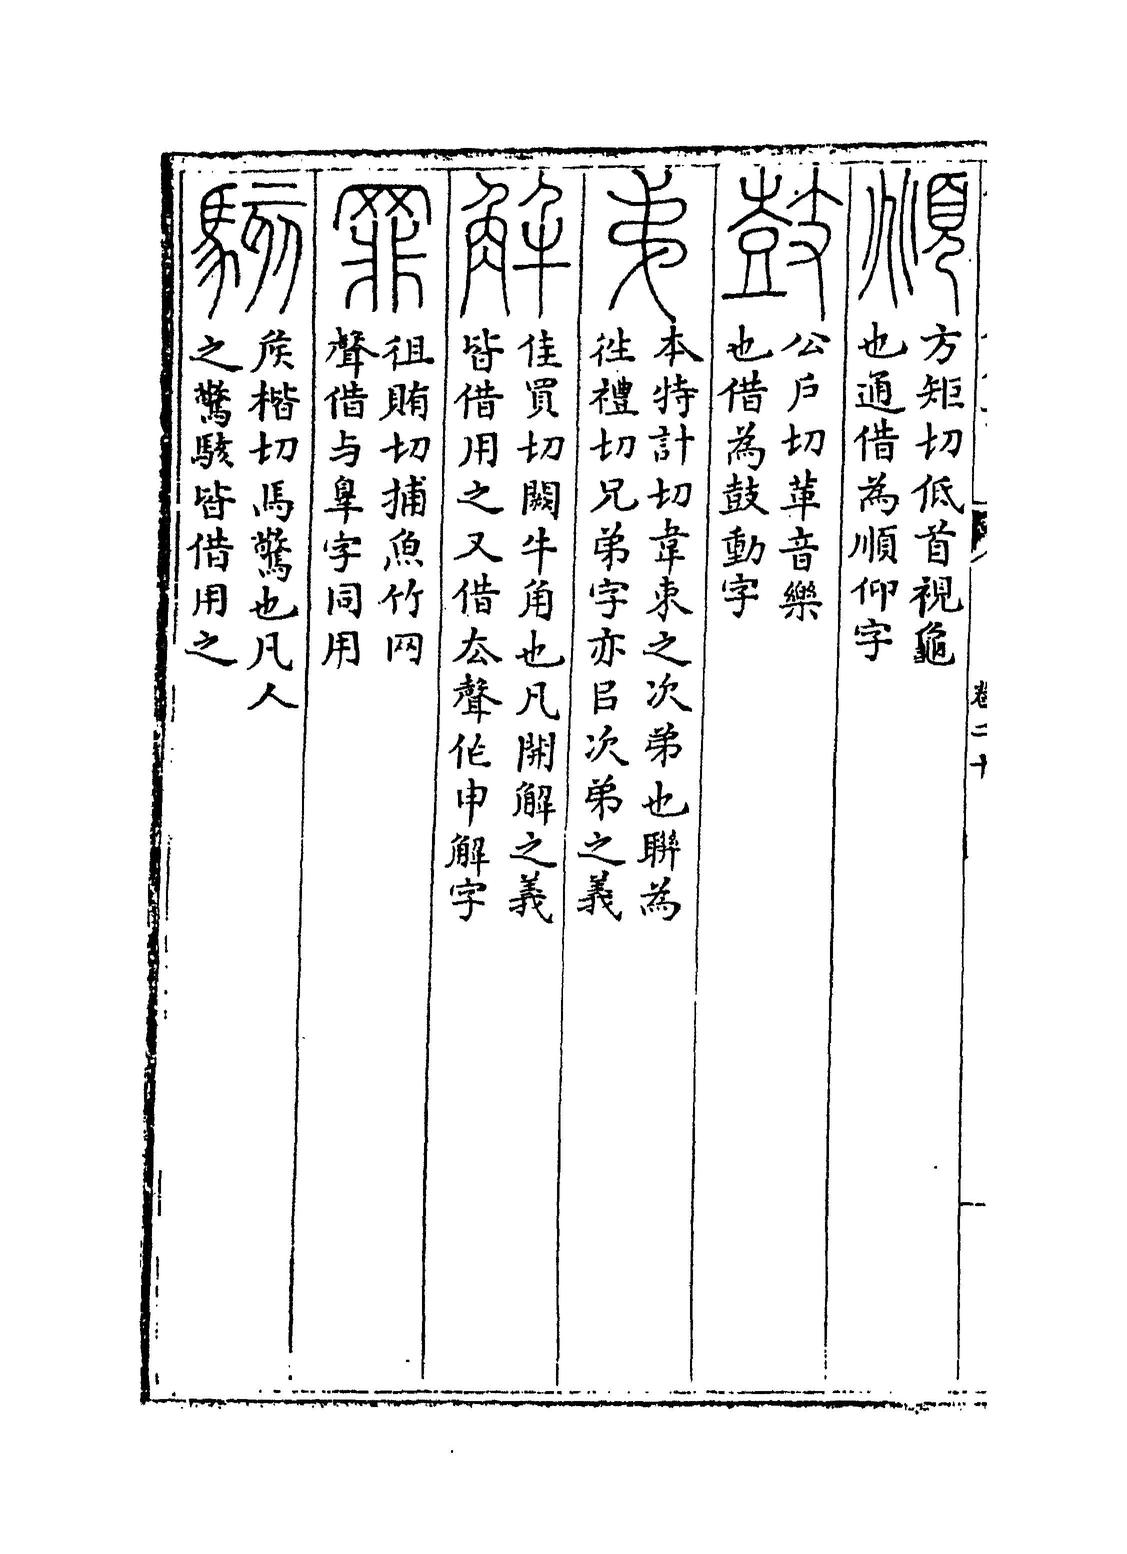 頫
方矩切低首視龜
也通借為順仰字
鼓
公戶切革音樂
也借為鼓動字
弟
本特計切韋束之次弟也聯為
徃禮切兄弟字亦㠯次弟之義
解
佳買切闕牛角也凡開解之義
皆借用之又借厺聲作申解字
罪
徂賄切捕魚竹网
聲借与辠字同用
駭
矦楷切馬驚也凡人
之驚駭皆借用之